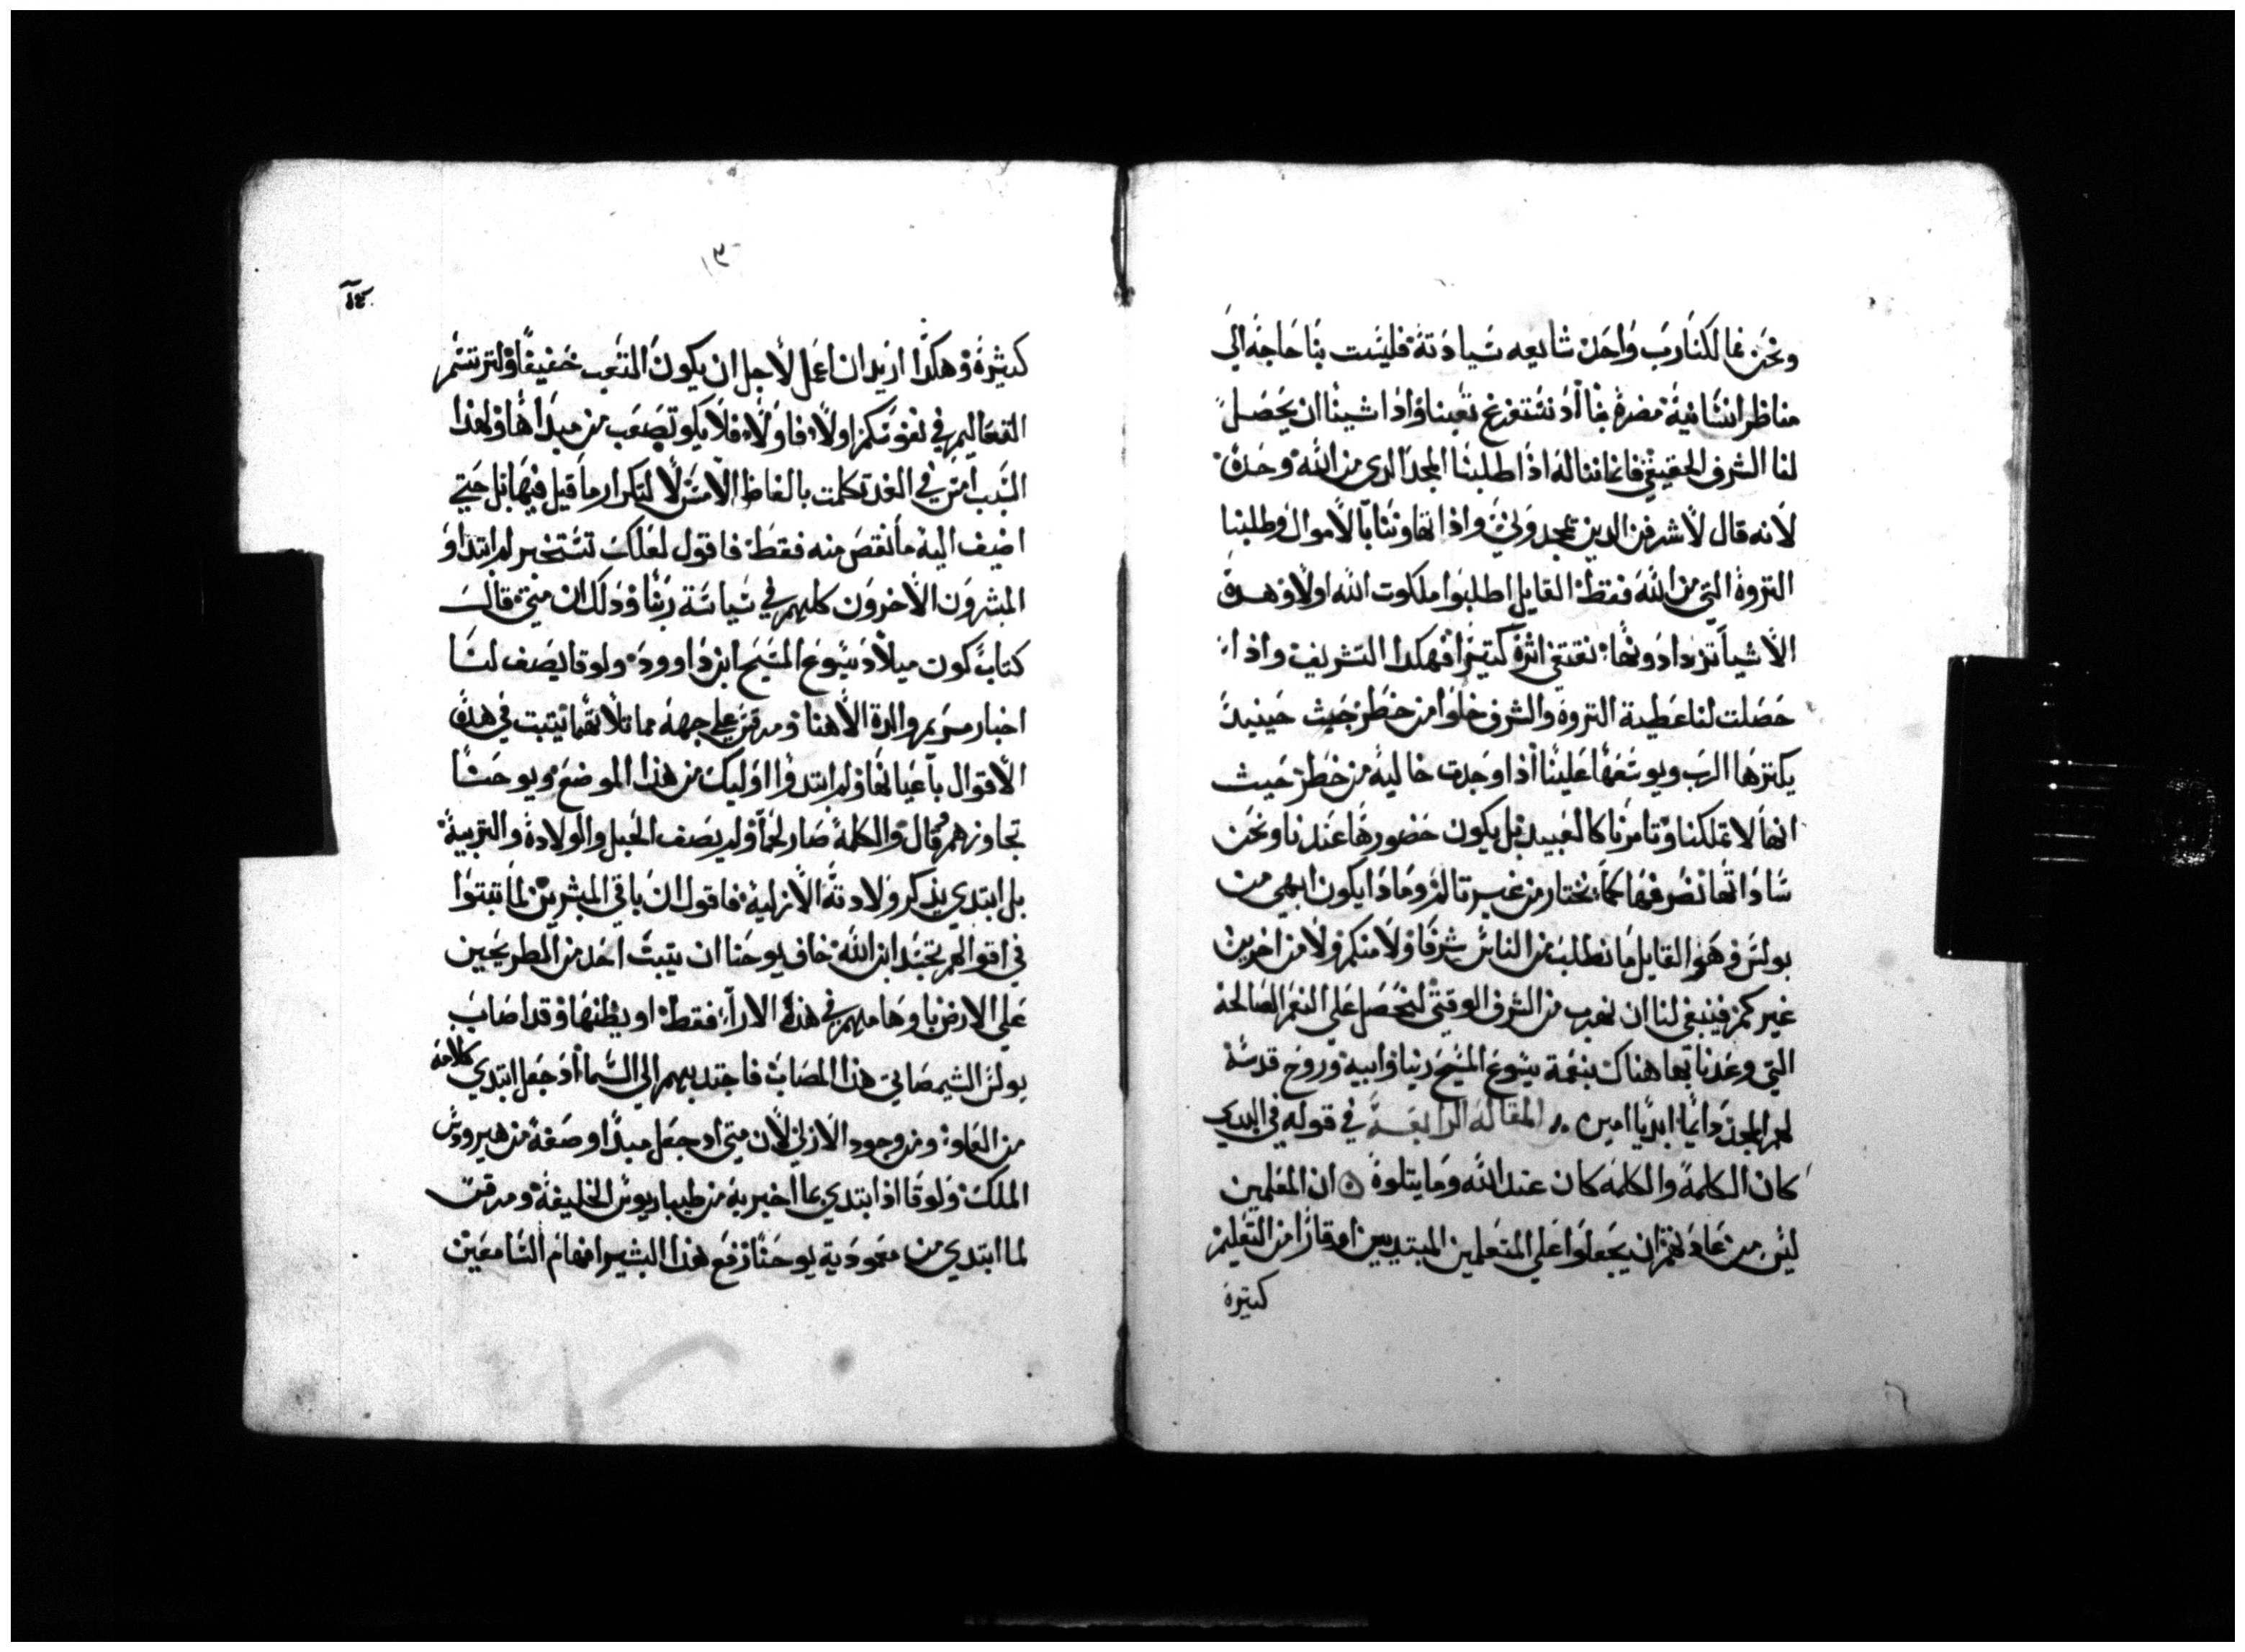 ونحن فما لكنا رب واحد شايعه سيادته فليست بنا حاجه الى
مناظر انسانية مضرة بنا اذ نستفرغ تعبنا واذا شينا ان يحصل
لنا الشرف الحقيقي فانما نناله اذا طلبنا المجد الدى من الله وحده
لانه قال لاشرفن الدين يمجدوني واذا تهاوننا بالاموال وطلبنا
التروة التي من الله فقط القايل اطلبوا ملكوت الله اولا وهده
الاشيا تزدادونها نقتفي اثره كتيرا فهكدا التشريف واذا
حصلت لنا عطية التروة والشرف خلوا من خطر حيث حينيد
يكنزها الرب ويوسعها علينا اذا وجدت خالية من خطر حيث
انها لا تملكنا وتامرنا كالعبيد بل يكون حضورها عندنا ونحن
ساداتها نصرفها كما نختار من غير تالم وماذا يكون ابهى من
بولس فهو القايل ما نطلب من الناس شرفا ولا منكم ولا من اخرين
غيركم فينبغي لنا ان نهرب من الشرف الوقتي لنحصل على النعم الصالحة
التي وعدنا بها هناك بنعمة يسوع المسيح ربنا وابيه وروح قدسه
لهم المجد دايما ابديا امين المقاله الرابعة في قوله في البدي
كان الكلمة والكلمه كان عند الله وما يتلوة ان المعلمين
ليس من عادتهم ان يجعلوا على المتعلمين المبتديين اوقارا من التعليم
كتيرة
١٣
كتيرة وهكدا اريد ان اعمل لاجل ان يكون التعب خفيفا ولترتسم
التعاليم في نفوسكم اولا فاولا فلا يكو تصعب من مبداها ولهدا
السبب امس في الغد تكلمت بالفاظ الامس لا لتكرار ما قيل فيها بل حتي
اضيف اليه ما نقص منه فقط فاقول لعلك تستخبر لم ابتداو
المبشرون الاخرون كلهم في سياسة ربنا وذلك ان متي قال
كتاب كون ميلاد يسوع المسيح ابن داوود ولوقا يصف لنا
اخبار مريم والدة الاهنا ومرقس على جهه مماتلا ثهما يتبت في هده
الاقوال باعيانها ولم ابتدوا اوليك من هذا الموضع ويوحنا
تجاوزهم قال والكلمة صار لحما ولم يصف الحبل والولادة والتربية
بل ابتدي يذكر ولادته الازلية فاقول ان باقي المبشرين لما تبتوا
في اقوالهم تجسد ابن الله خاف يوحنا ان يتبت احد من المطريحين
على الارض باوهامهم في هذه الارا فقط او يظنها وقد اصاب
بولس الشيمصاتي هذا المصاب فاجتدبهم الي السما اذ جعل ابتدي كلامه
من العلو ومن وجود الازلي لان متي اد جعل مبدا وصفه من هيرودس
الملك ولوقا اذ ابتدي بما اخبر به من طيباريوس الخليفة ومرقس
لما ابتدي من معمودية يوحنا رفع هذا البشير افهام السامعين